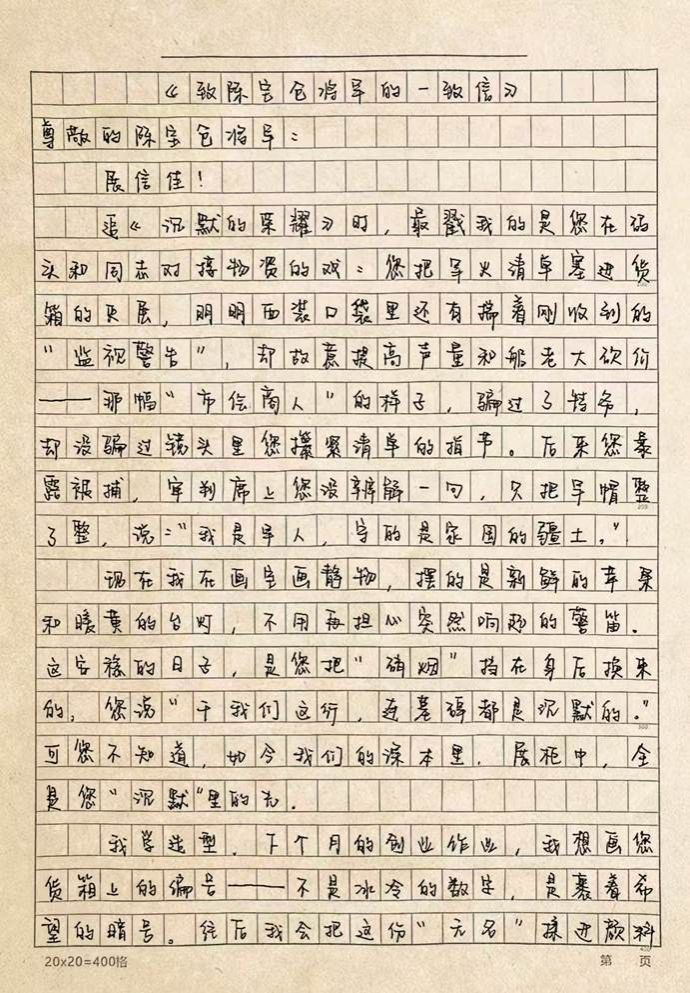 《致陈宝仓将军的一致信》
尊敬的陈宝仓将军：
展信佳！
追《沉默的荣耀》时，最戳我的是您在码
头和同志对接物资的戏：您把军火清单塞进货
箱的夹层，明明西装口袋里还有揣着刚收到的
“监视警告”，却故意提高声量和船老大砍价
——那幅“市侩商人”的样子，骗过了特务，
却没骗过镜头里您攥紧清单的指节。后来您暴
露被捕，审判席上您没辩解一句，只把军帽整
了整，说：“我是军人，守的是家国的疆土。”
现在我在画室画静物，摆的是新鲜的苹果
和暖黄的台灯，不用再担心突然响起的警笛。
这安稳的日子，是您把“硝烟”挡在身后换来
的。您说“干我们这行，连墓碑都是沉默的。”
可您不知道，如今我们的课本里、展柜中，全
是您“沉默”里的光。
我学造型，下个月的创业作业，我想画您
货箱上的编号——不是冰冷的数字，是裹着希
望的暗号。往后我会把这份“无名”揉进颜料
20×20=400格
第 页